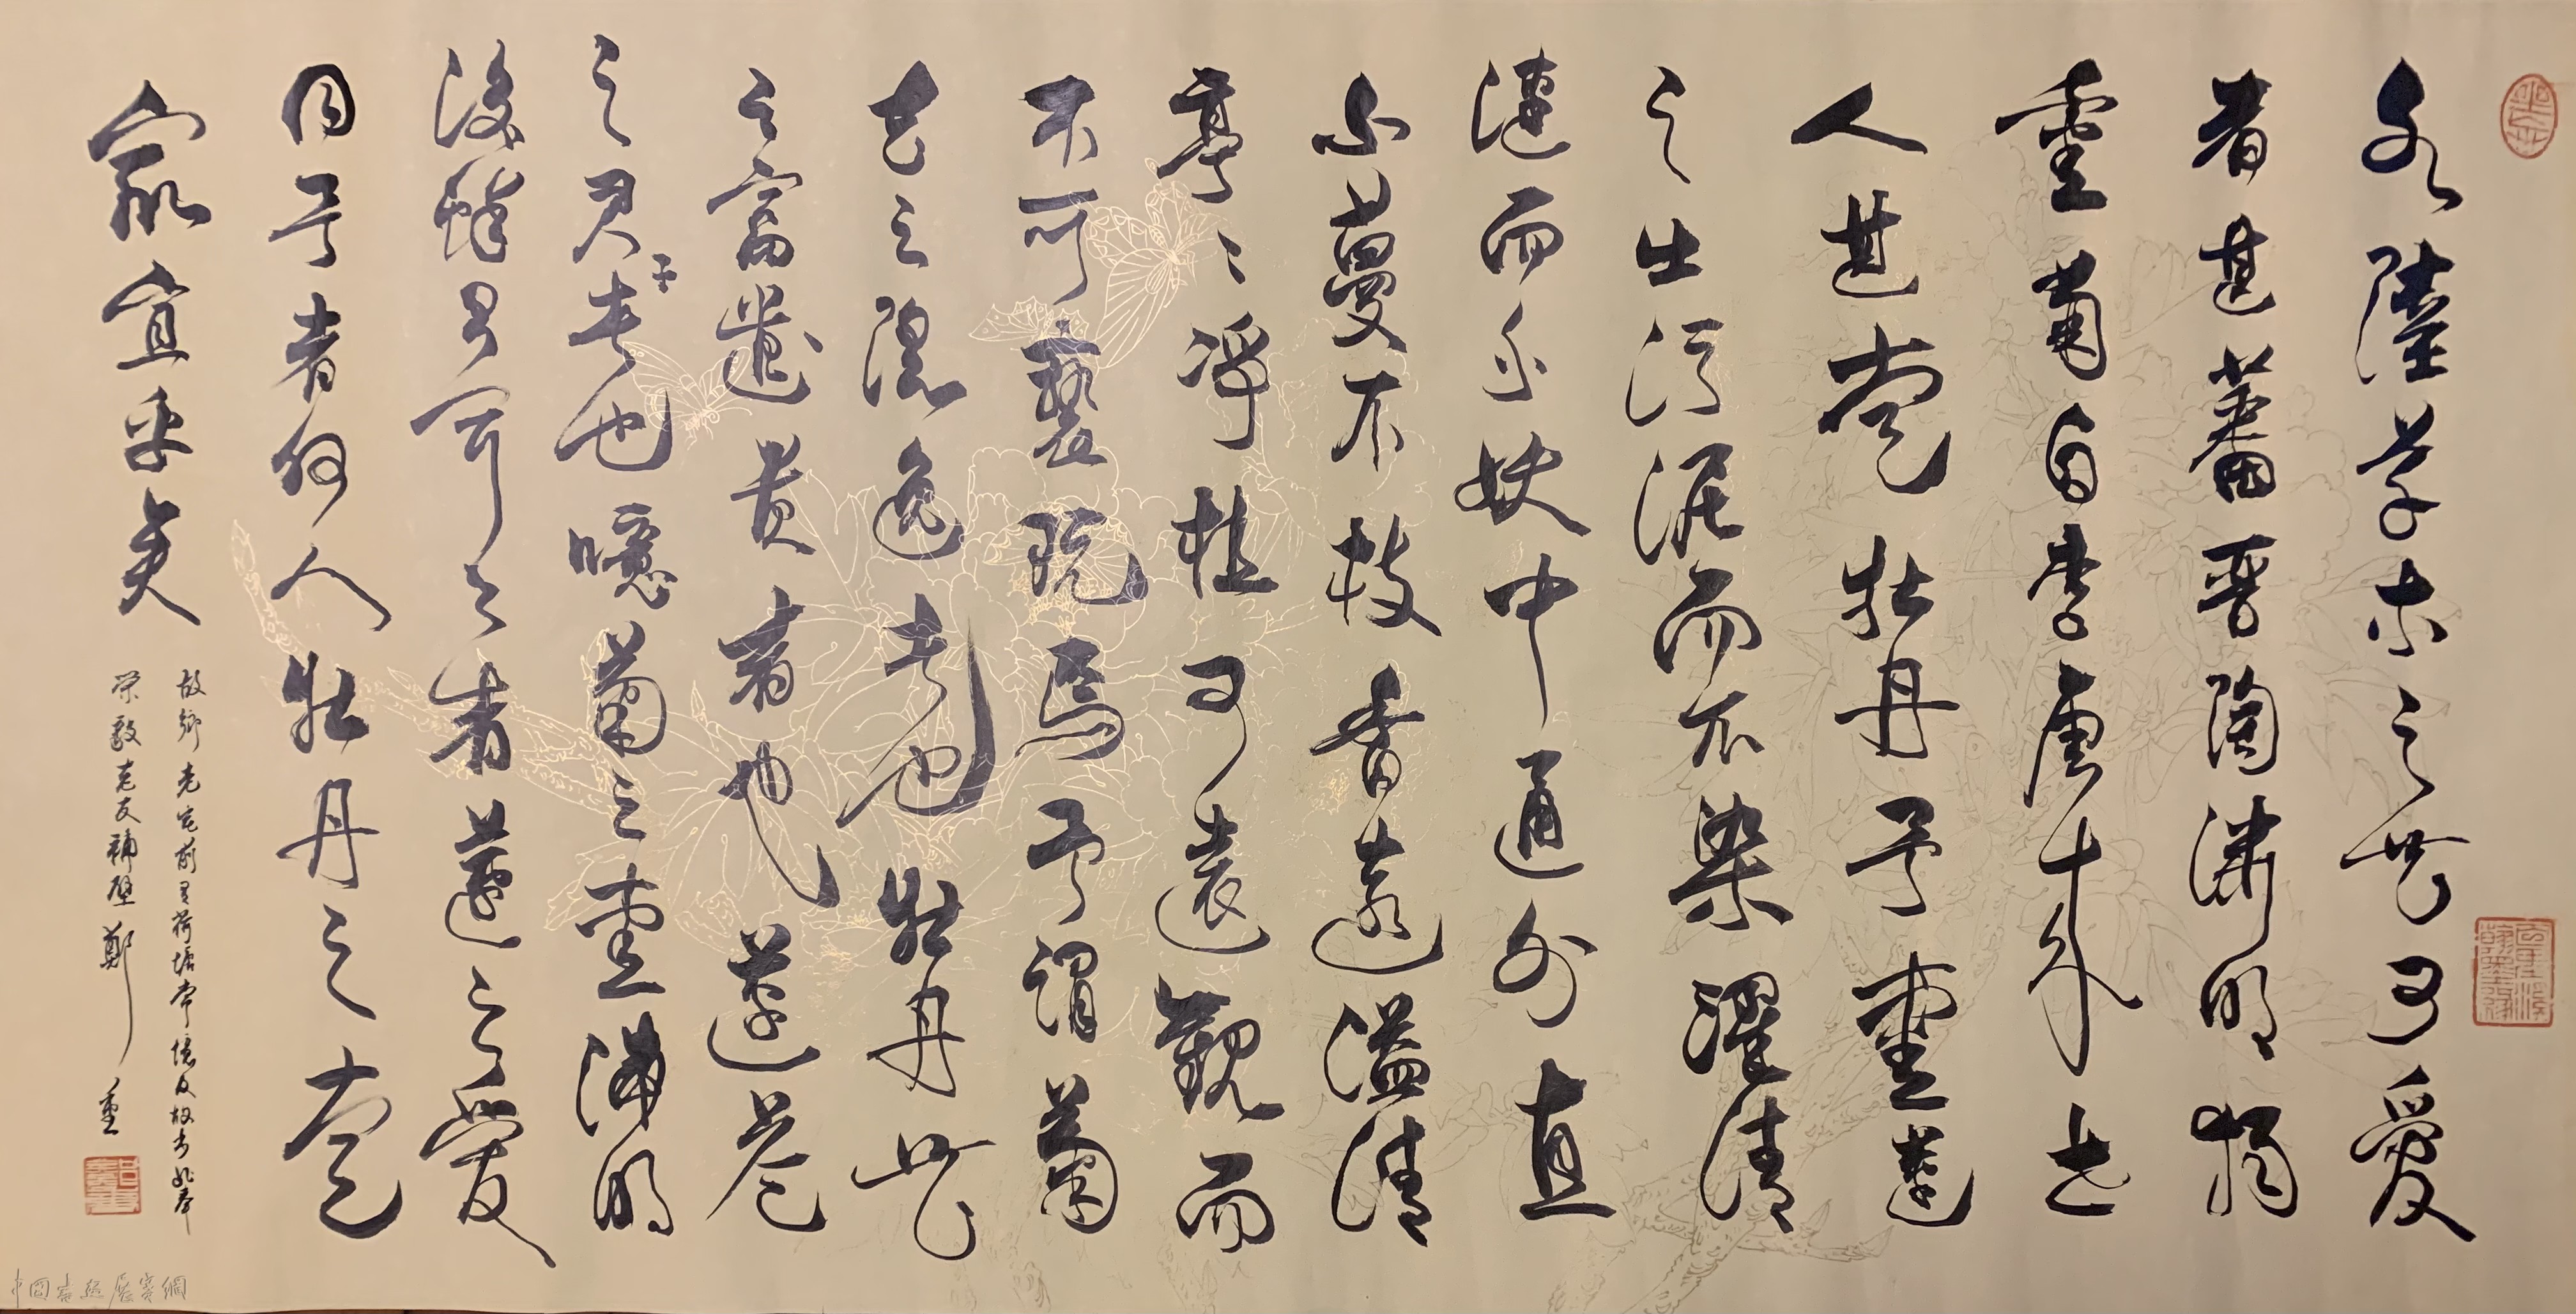 水陸草木之花可愛
者甚蕃晉陶淵明獨
愛菊自李唐來世
人甚愛牡丹予愛蓮
之出污泥而不染濯清
漣而不妖中通外直
不蔓不枝香遠溢清
亭々淨植可遠觀而
不可褻玩焉予謂菊
花之隱逸者也牡丹花
之富遺貴者也蓮花
之君子者也噫菊之愛淵明
後鮮有聞之者蓮之愛
同予者何人牡丹之愛
衆宜乎矣
故鄉老宅前有荷塘常憶及故書此奉
榮毅老友補壁 鄭重